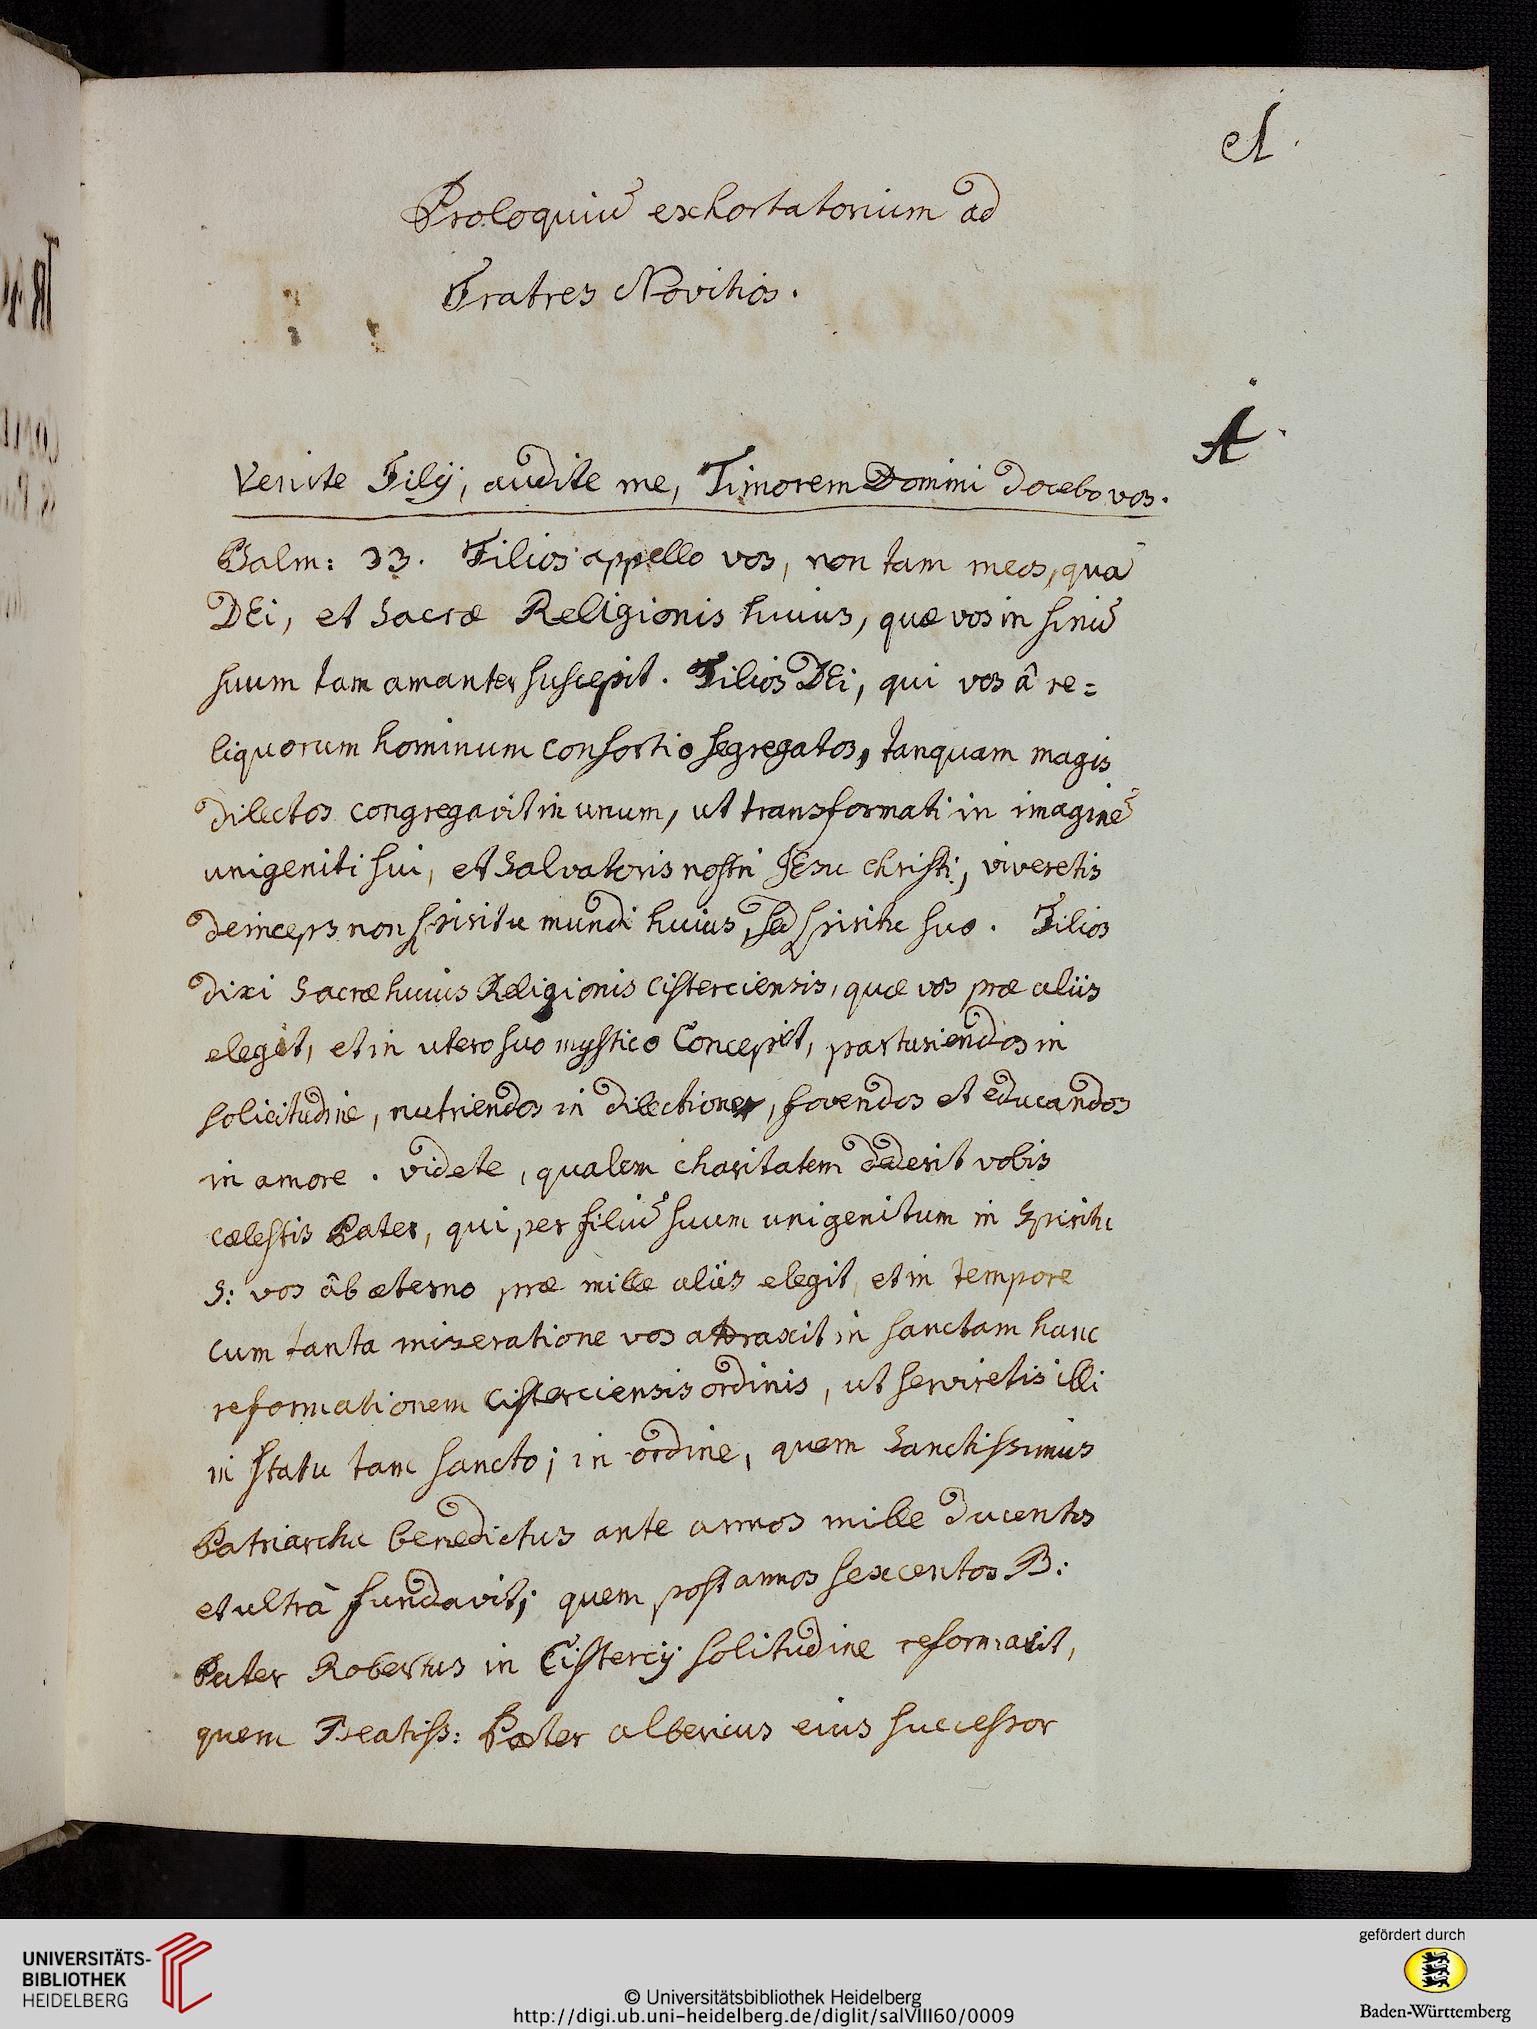 A.
Proloquiū exhortatorium ad
Fratres Novitios.
A.
Venite Filij, audite me, Timorem Domini docebo vos.
Psalm: 33. Filios appello vos, non tam meos, quā
DEi, et Sacræ Religionis huius, quæ vos in sinū
suum tam amanter suscepit. Filios DEi, qui vos â re=
liquorum hominum consortio segregatos, tanquam magis
dilectos congregavit in unum, ut transformati in imaginē
unigeniti sui, et Salvatoris nostri JEsu Christi, viveretis
deinceps non spiritu mundi huius, sed spiritu suo. Filios
dixi Sacræ huius Religionis Cisterciensis, quæ vos præ aliis
elegit, et in utero suo mystico Concepit, parturiendos in
solicitudine, nutriendos in dilectione, fovendos et educandos
in amore. videte, qualem charitatem dederit vobis
cælestis Pater, qui per filiū suum unigenitum in Spiritu
S: vos âb æterno præ mille aliis elegit, et in tempore
cum tanta miseratione vos attraxit in sanctam hanc
reformationem Cisterciensis ordinis, ut serviretis illi
in statu tam sancto; in ordine, quem Sanctissimus
Patriarcha benedictus ante annos mille ducentos
et ultrà fundavit; quem post annos sexcentos B:
Pater Robertus in Cistercij solitudine reformavit,
quem Beatiss: Pater albericus eius successor
UNIVERSITÄTS-
BIBLIOTHEK
HEIDELBERG
© Universitätsbibliothek Heidelberg
http://digi.ub.uni-heidelberg.de/diglit/salVIII60/0009
gefördert durch
Baden-Württemberg